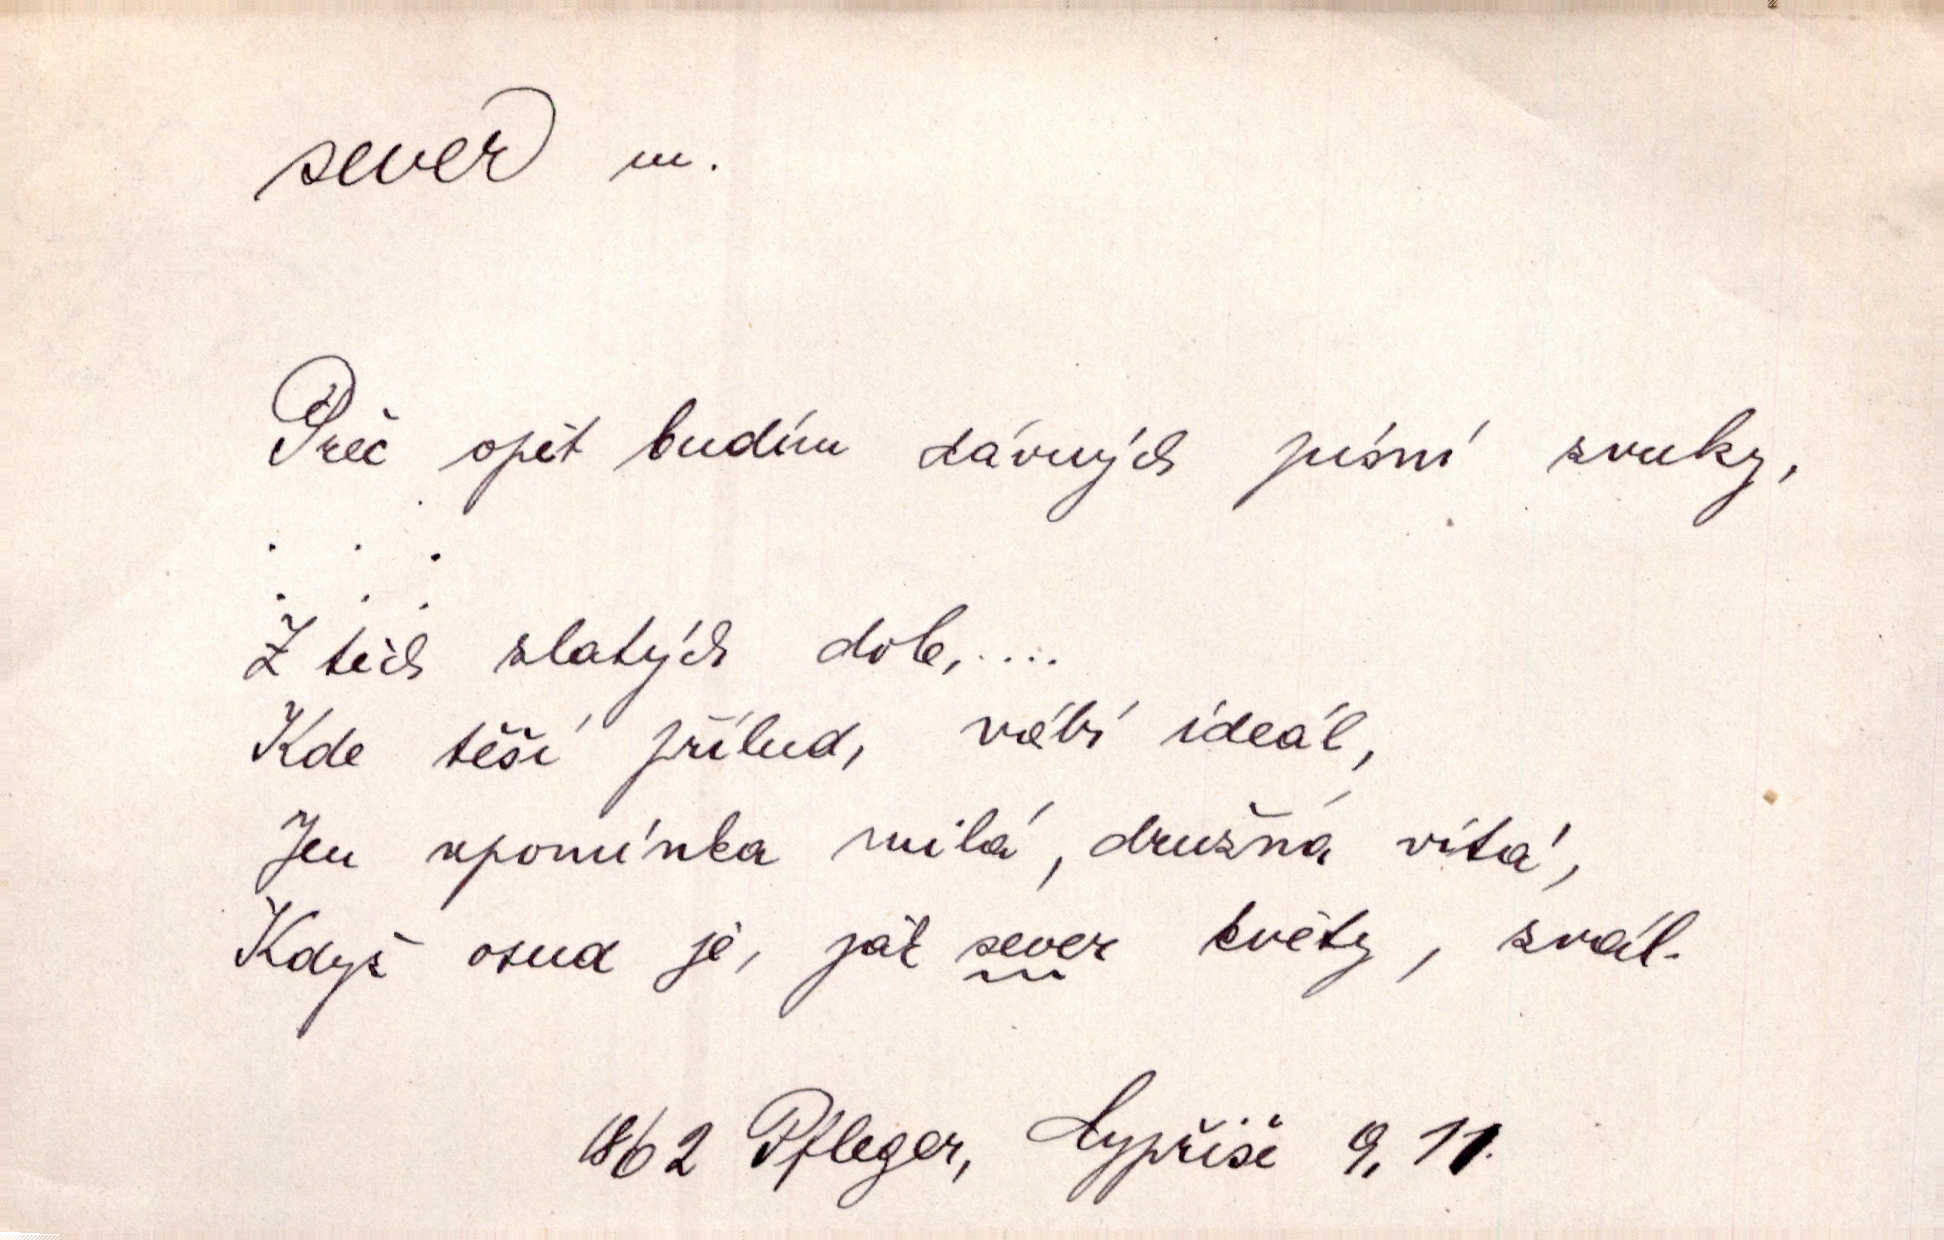 sever m.
Proč opět budím dávných písní zvuky,
. . .
. . .
Z těch zlatých dob, ....
Kde těší přílud, vábí ideál,
Jen upomínka milá, družná vítá,
Když osud je, jak sever květy, svál.
1862 Pfleger, Cypřiše 9, 11.